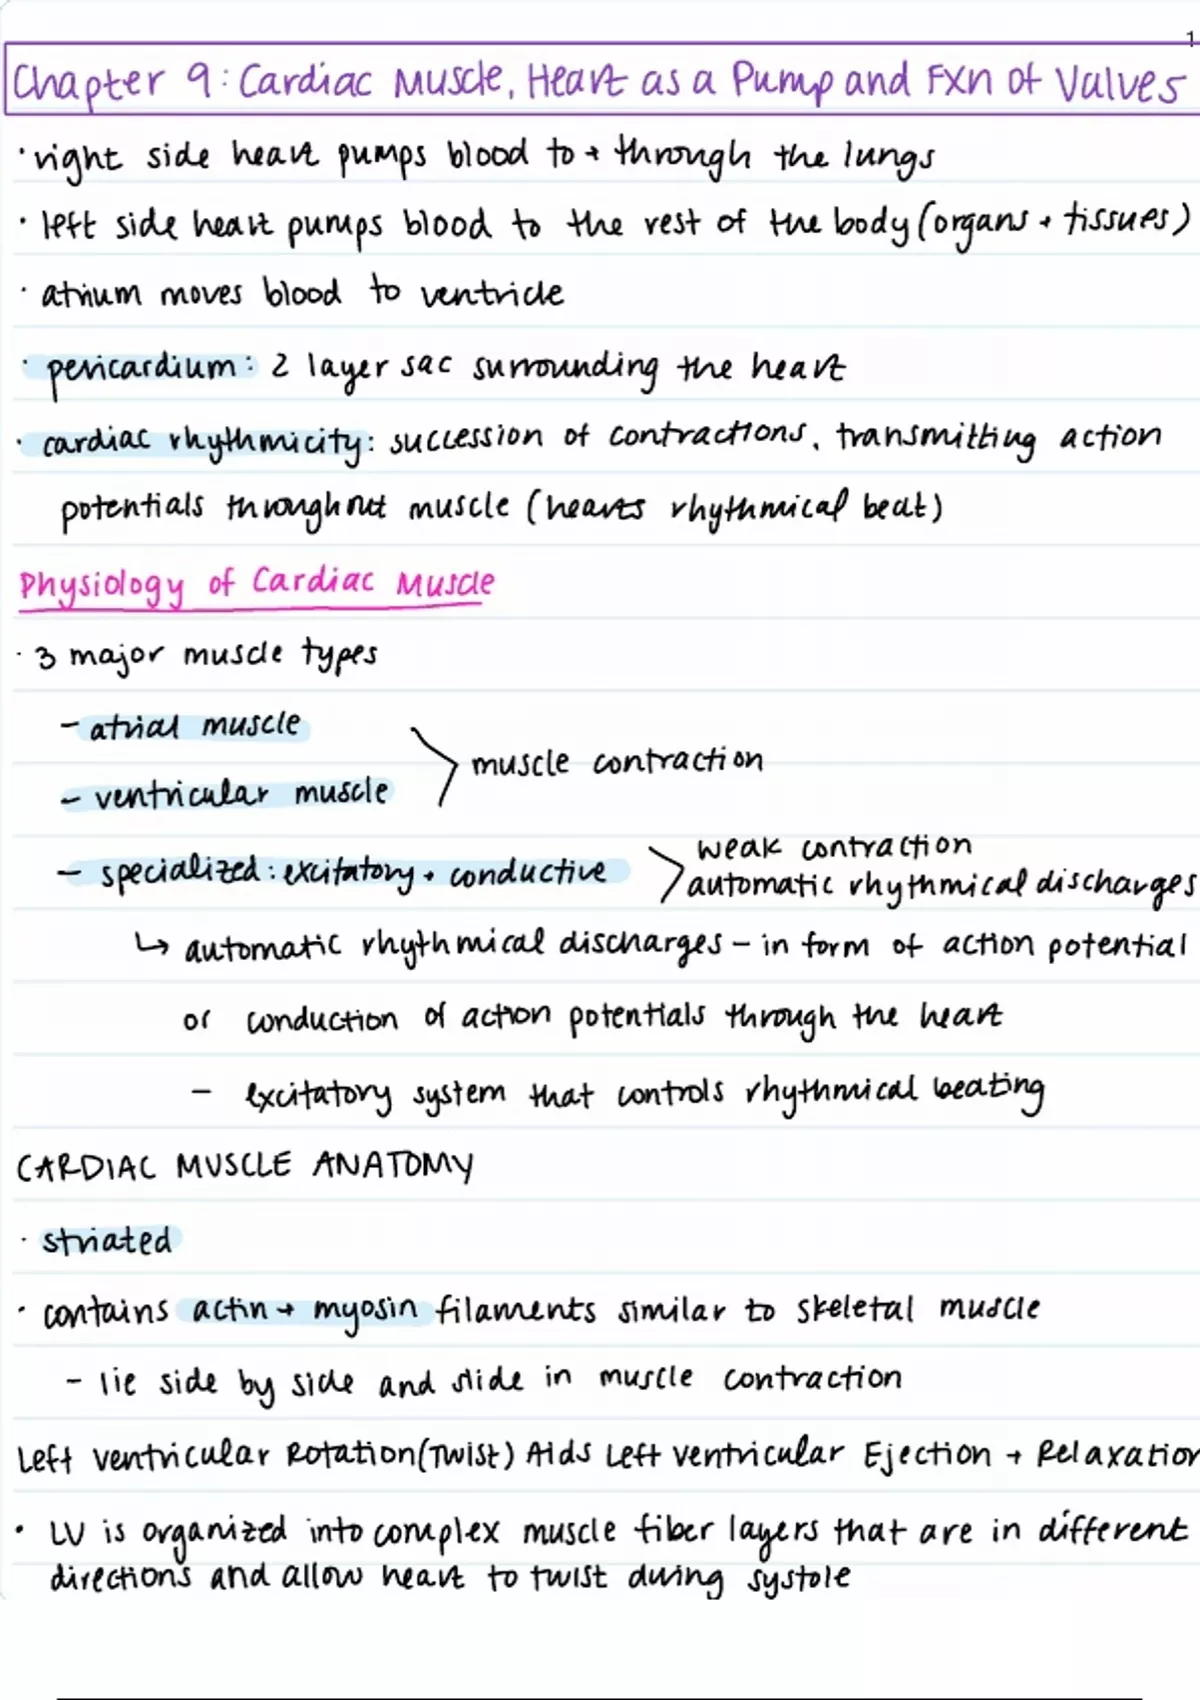 1
Chapter 9: Cardiac Muscle, Heart as a Pump and Fxn of Valves
· right side heart pumps blood to + through the lungs
· left side heart pumps blood to the rest of the body (organs + tissues)
· atrium moves blood to ventricle
· pericardium: 2 layer sac surrounding the heart
· cardiac rhythmicity: succession of contractions, transmitting action
potentials throughout muscle (hearts rhythmical beat)
Physiology of Cardiac Muscle
· 3 major muscle types
- atrial muscle
muscle contraction
- ventricular muscle
- specialized: excitatory + conductive
weak contraction
automatic rhythmical discharges
↳ automatic rhythmical discharges - in form of action potential
or conduction of action potentials through the heart
- excitatory system that controls rhythmical beating
CARDIAC MUSCLE ANATOMY
· striated
· contains actin + myosin filaments similar to skeletal muscle
- lie side by side and slide in muscle contraction
Left Ventricular Rotation (Twist) Aids Left Ventricular Ejection + Relaxation
· LV is organized into complex muscle fiber layers that are in different
directions and allow heart to twist during systole